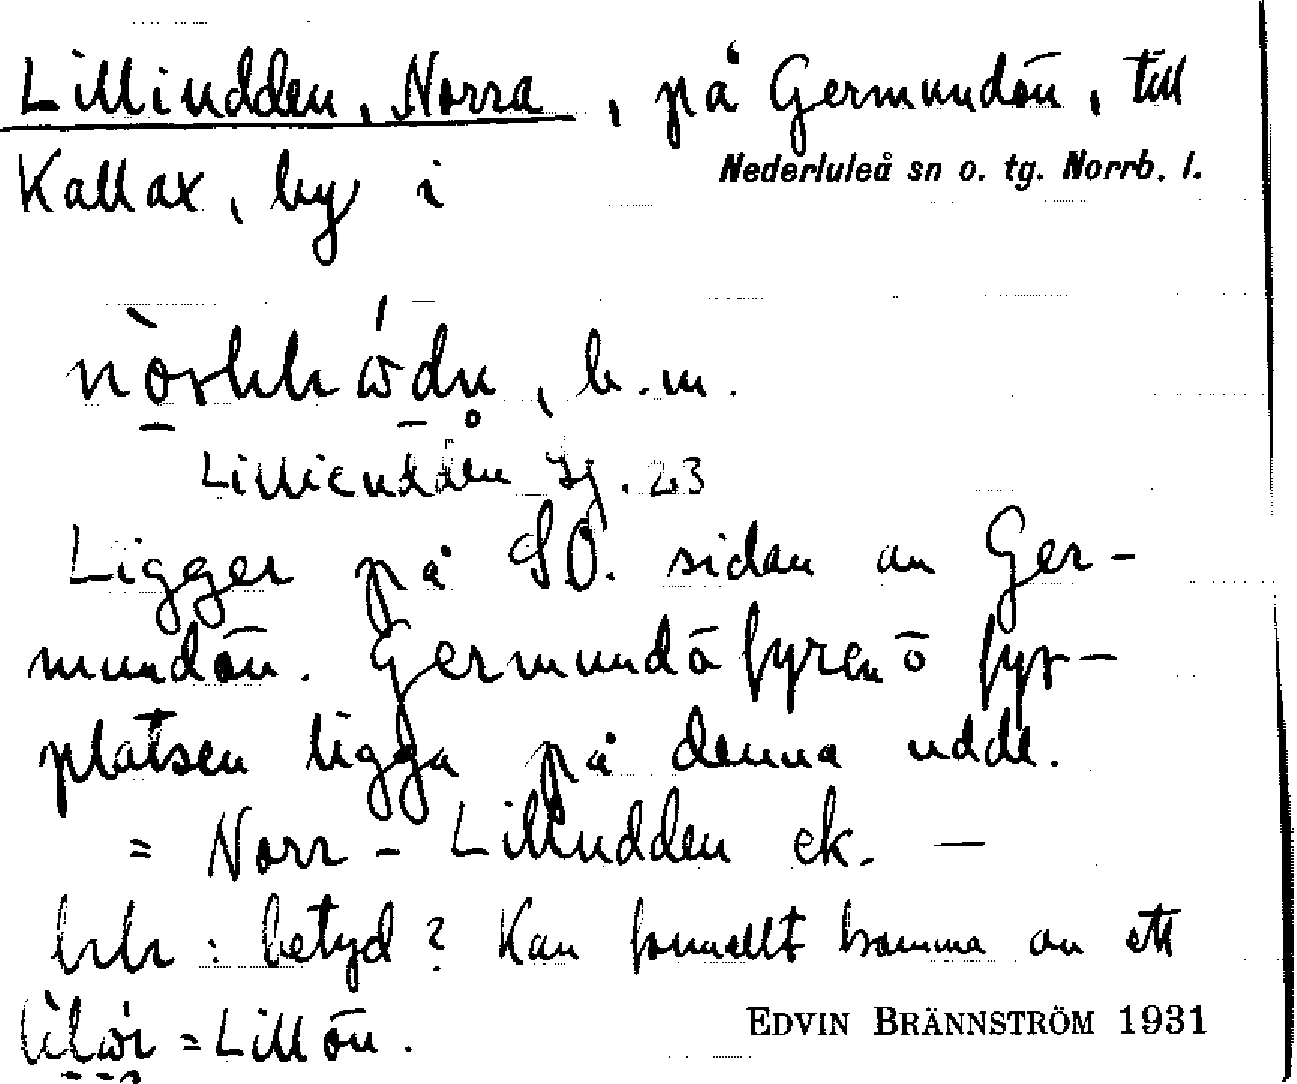 Lilliudden, Norra, på Germundön, till
Nederluleå sn o. tg. Norrb. l.
Kallax, by i
b.m.
Lillieudden Sg. 23
Ligger på SO. sidan av Ger-
mundön. Germundöfyren o fyr-
platsen ligga på denna udde.
= Norr-Lilludden ek. —
betyd? Kan formellt komma av ett
= Lillön.
EDVIN BRÄNNSTRÖM 1931